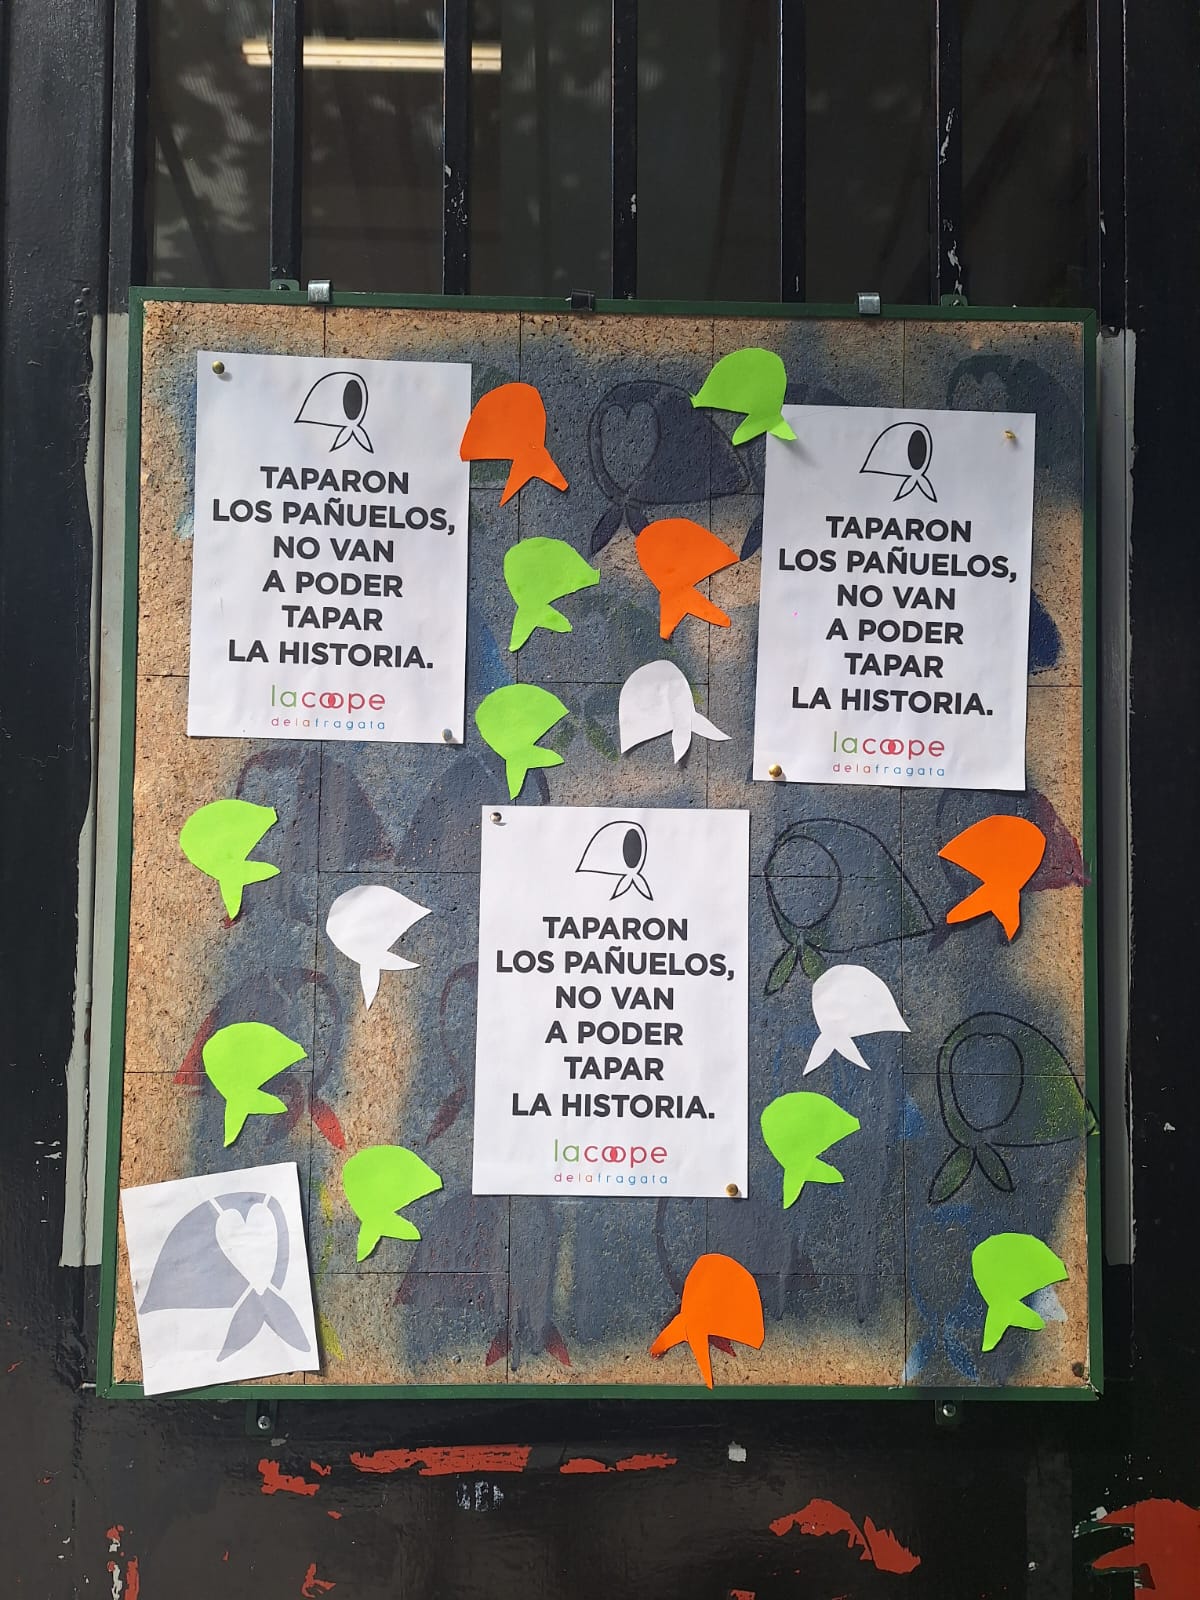 TAPARON
LOS PAÑUELOS,
NO VAN
A PODER
TAPAR
LA HISTORIA.
lacoope
delafragata
TAPARON
LOS PAÑUELOS,
NO VAN
A PODER
TAPAR
LA HISTORIA.
lacoope
delafragata
TAPARON
LOS PAÑUELOS,
NO VAN
A PODER
TAPAR
LA HISTORIA.
lacoope
delafragata